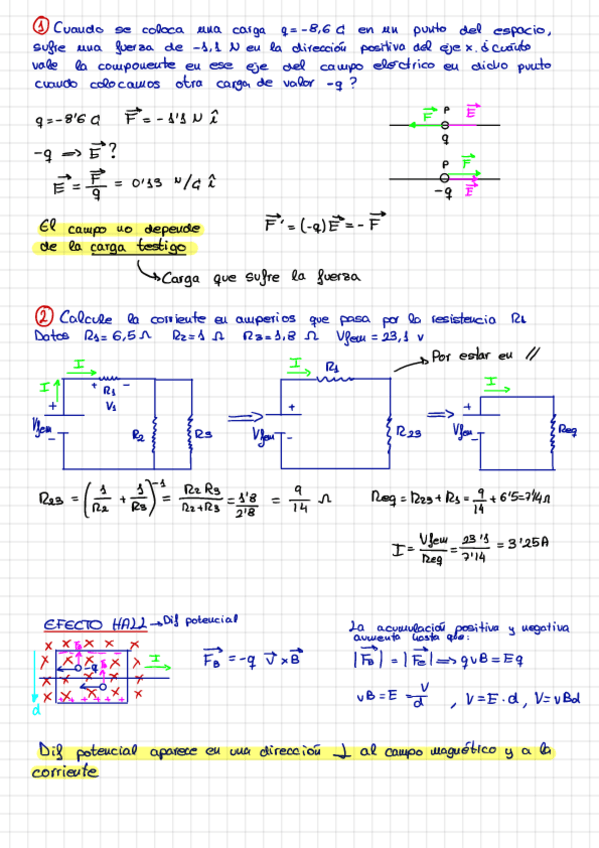 ① Cuando se coloca una carga q=-8,6 C en un punto del espacio,
sufre una fuerza de -1,1 N en la dirección positiva del eje x. ¿cuánto
vale la componente en ese eje del campo eléctrico en dicho punto
cuando colocamos otra carga de valor -q ?
q=-8'6 C F = -1'1 N î
-q => E ?
E = F/q = 0'13 N/C î
F P E
q
P F
-q E
El campo no depende
de la carga testigo
F' = (-q)E = -F
Carga que sufre la fuerza
② Calcule la corriente en amperios que pasa por la resistencia R1
Datos R1=6,5 Ω R2=1 Ω R3=1,8 Ω Vfem=23,1 v
Por estar en //
I I + R1 - V1 + Vfem - R2 R3
=> I R1 + Vfem - R23
=> I + Vfem - Req
R23 = (1/R2 + 1/R3)^-1 = R2 R3/(R2+R3) = 1'8/2'8 = 9/14 Ω
Req = R23+R1 = 9/14 + 6'5=7'14Ω
I = Vfem/Req = 23'1/7'14 = 3'25A
EFECTO HALL → Dif potencial
La acumulación positiva y negativa
aumenta hasta que:
x x x x x x
I
-q
d
F_B = -q v x B
|F_B| = |F_e| => qvB = Eq
vB = E = V/d , V=E·d , V=vBd
Dif potencial aparece en una dirección ⊥ al campo magnético y a la
corriente